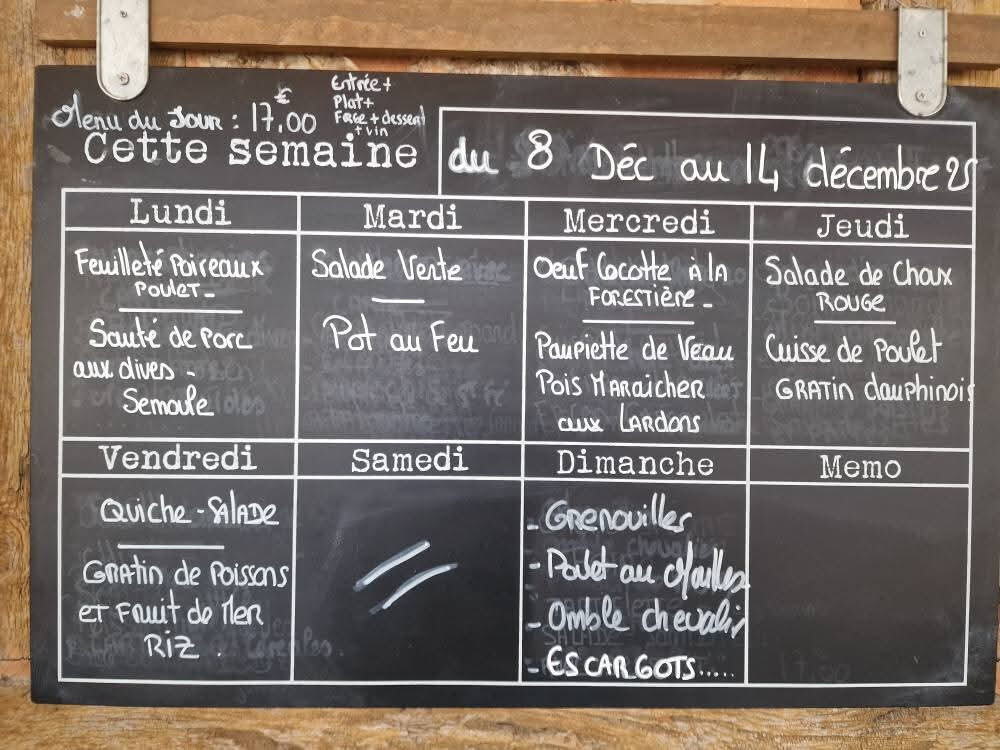 Menu du Jour : 17,00 €
Entrée +
Plat +
Frge + dessert
+ vin
Cette semaine
du 8 Déc au 14 décembre 25
Lundi
Feuilleté Poireaux
Poulet -
Sauté de Porc
aux olives -
Semoule
Mardi
Salade Verte
Pot au Feu
Mercredi
Oeuf Cocotte à la
Forestière -
Paupiette de Veau
Pois Maraîcher
aux Lardons
Jeudi
Salade de Choux
Rouge
Cuisse de Poulet
Gratin dauphinois
Vendredi
Quiche - Salade
Gratin de Poissons
et Fruit de Mer
Riz .
Samedi
Dimanche
- Grenouilles
- Poulet au Morilles
- Omble chevalier
- Escargots.....
Memo